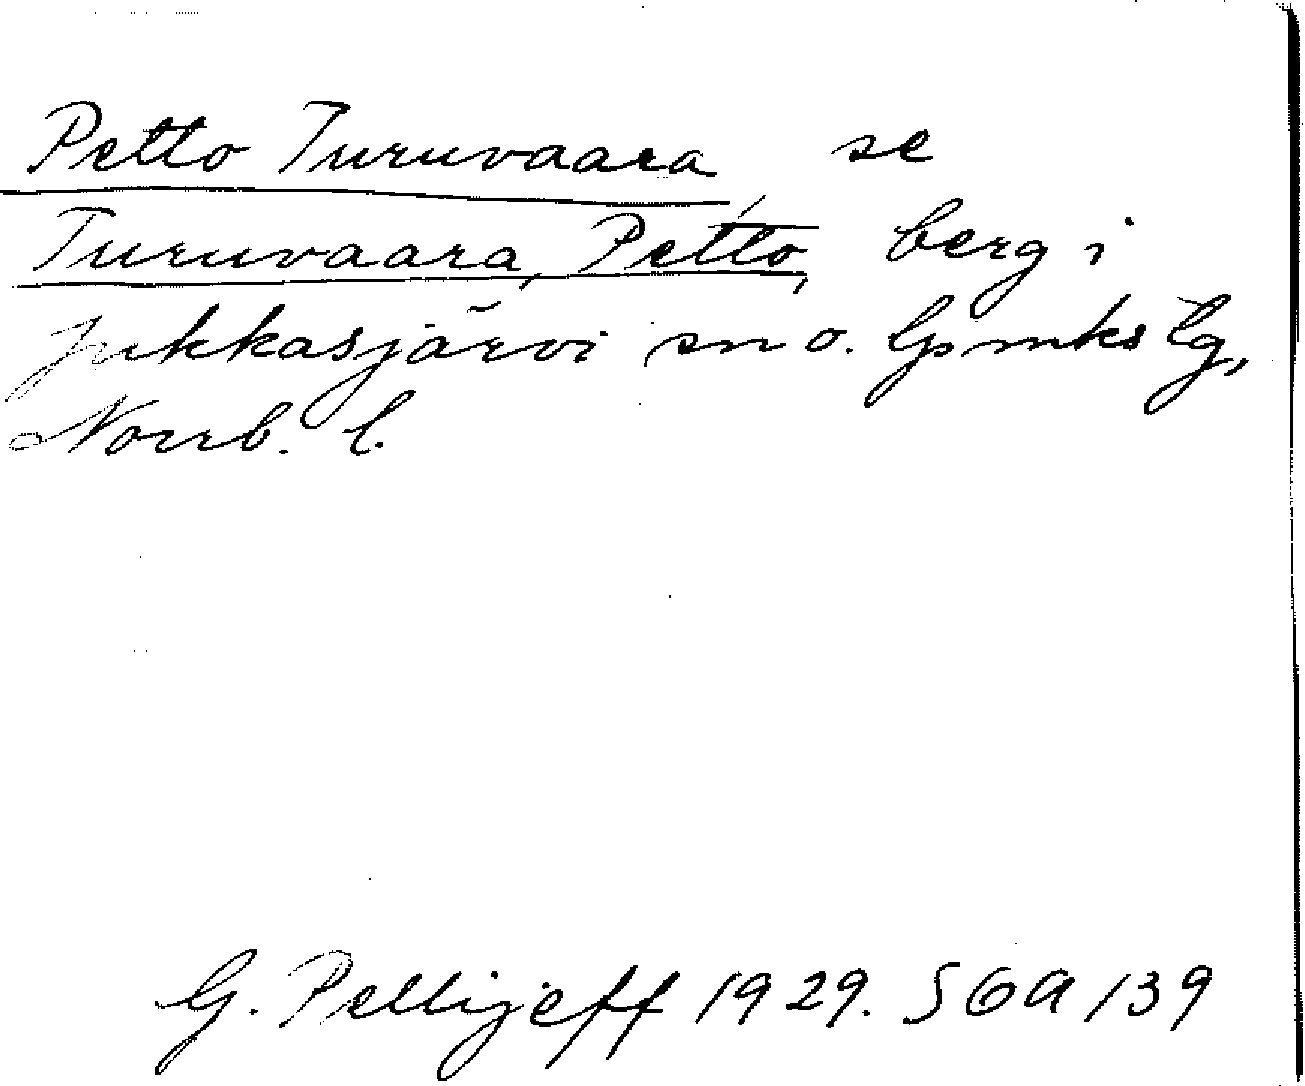 Petto Turuvaara, se
Turuvaara, Petto, berg i
Jukkasjärvi sn o. Gpmks lg,
Norrb. l.
G. Pellijeff 1929. SOA 139